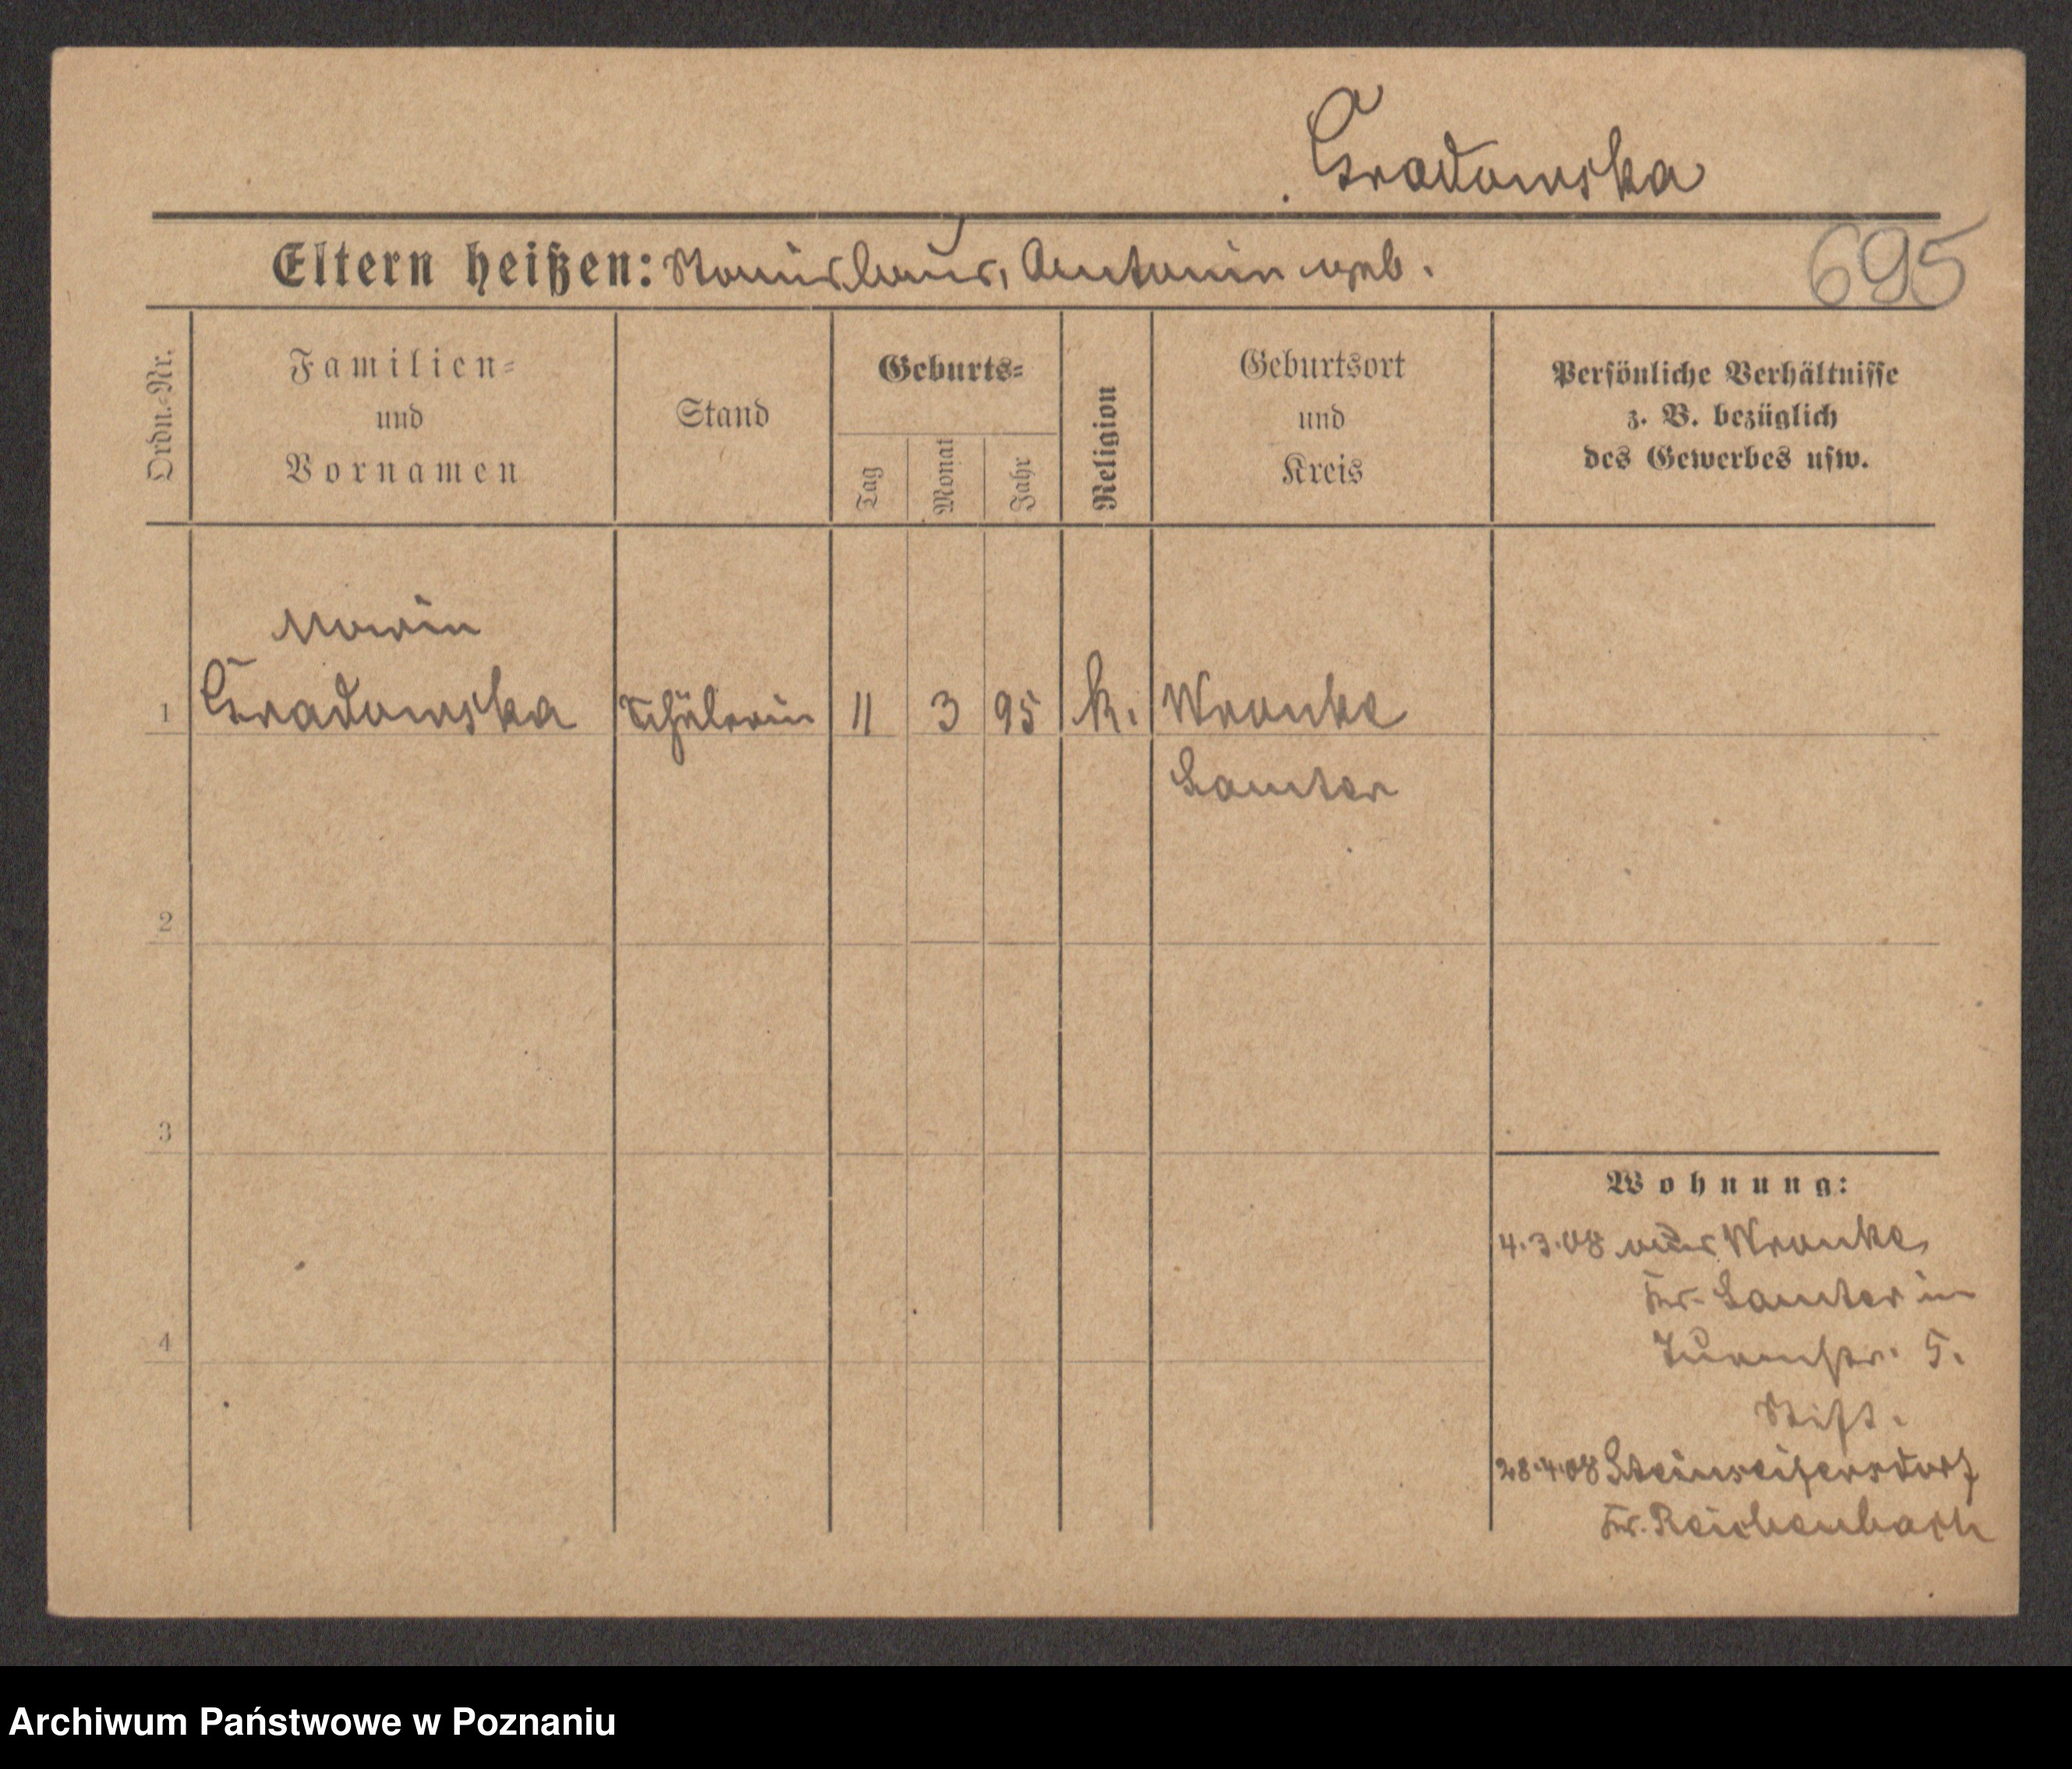 Gradowska
Eltern heißen: Stanislaus, Antonin geb.
695
Ordn.-Nr.
Familien-
und
Vornamen
Stand
Geburts-
Tag
Monat
Jahr
Religion
Geburtsort
und
Kreis
Persönliche Verhältnisse
z. B. bezüglich
des Gewerbes usw.
Marin
1 Gradowska Schülerin 11 3 95 k. Wronke
Samter
2
3
4
Wohnung:
4.3.08 aus Wronke
Kr. Samter in
Turmstr. 5.
Stift.
28.4.08 Steinseifersdorf
Kr. Reichenbach
Archiwum Państwowe w Poznaniu